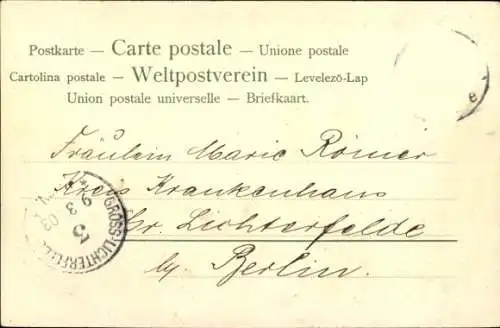 Postkarte — Carte postale — Unione postale
Cartolina postale — Weltpostverein — Levelező-Lap
Union postale universelle — Briefkaart.
Fräulein Marie Römer
Kreis Krankenhaus
Gr. Lichterfelde
b/ Berlin.
GROSS-LICHTERFELDE
9 3 03
3
e